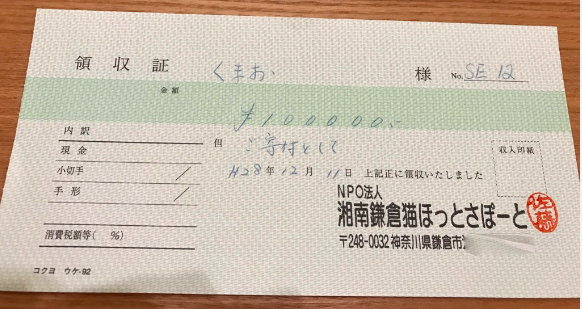 領収証 くまお 様 No. SE 12
金額
¥100000.-
内訳
但 ご寄付として
現金
小切手 /
H28年12月11日 上記正に領収いたしました
収入印紙
手形 /
NPO法人
湘南鎌倉猫ほっとさぽーと
消費税額等( %)
〒248-0032 神奈川県鎌倉市
コクヨ ウケ-92